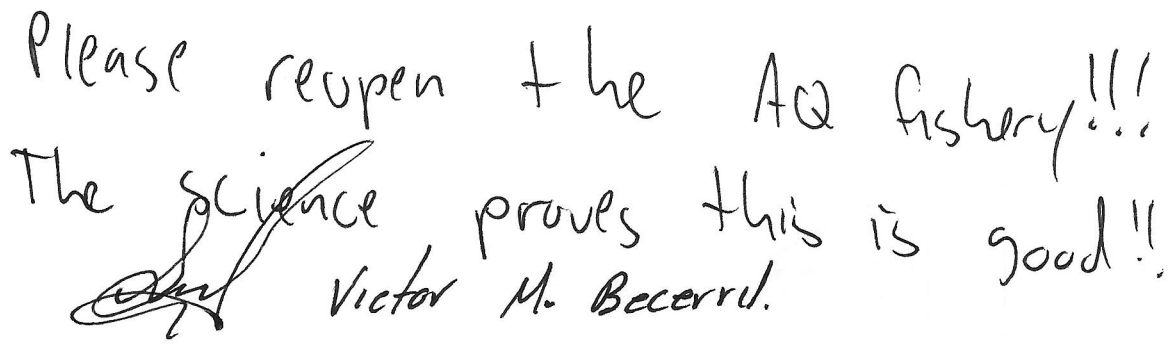 Please reopen the AQ fishery!!!
The science proves this is good!!
Victor M. Becerril.